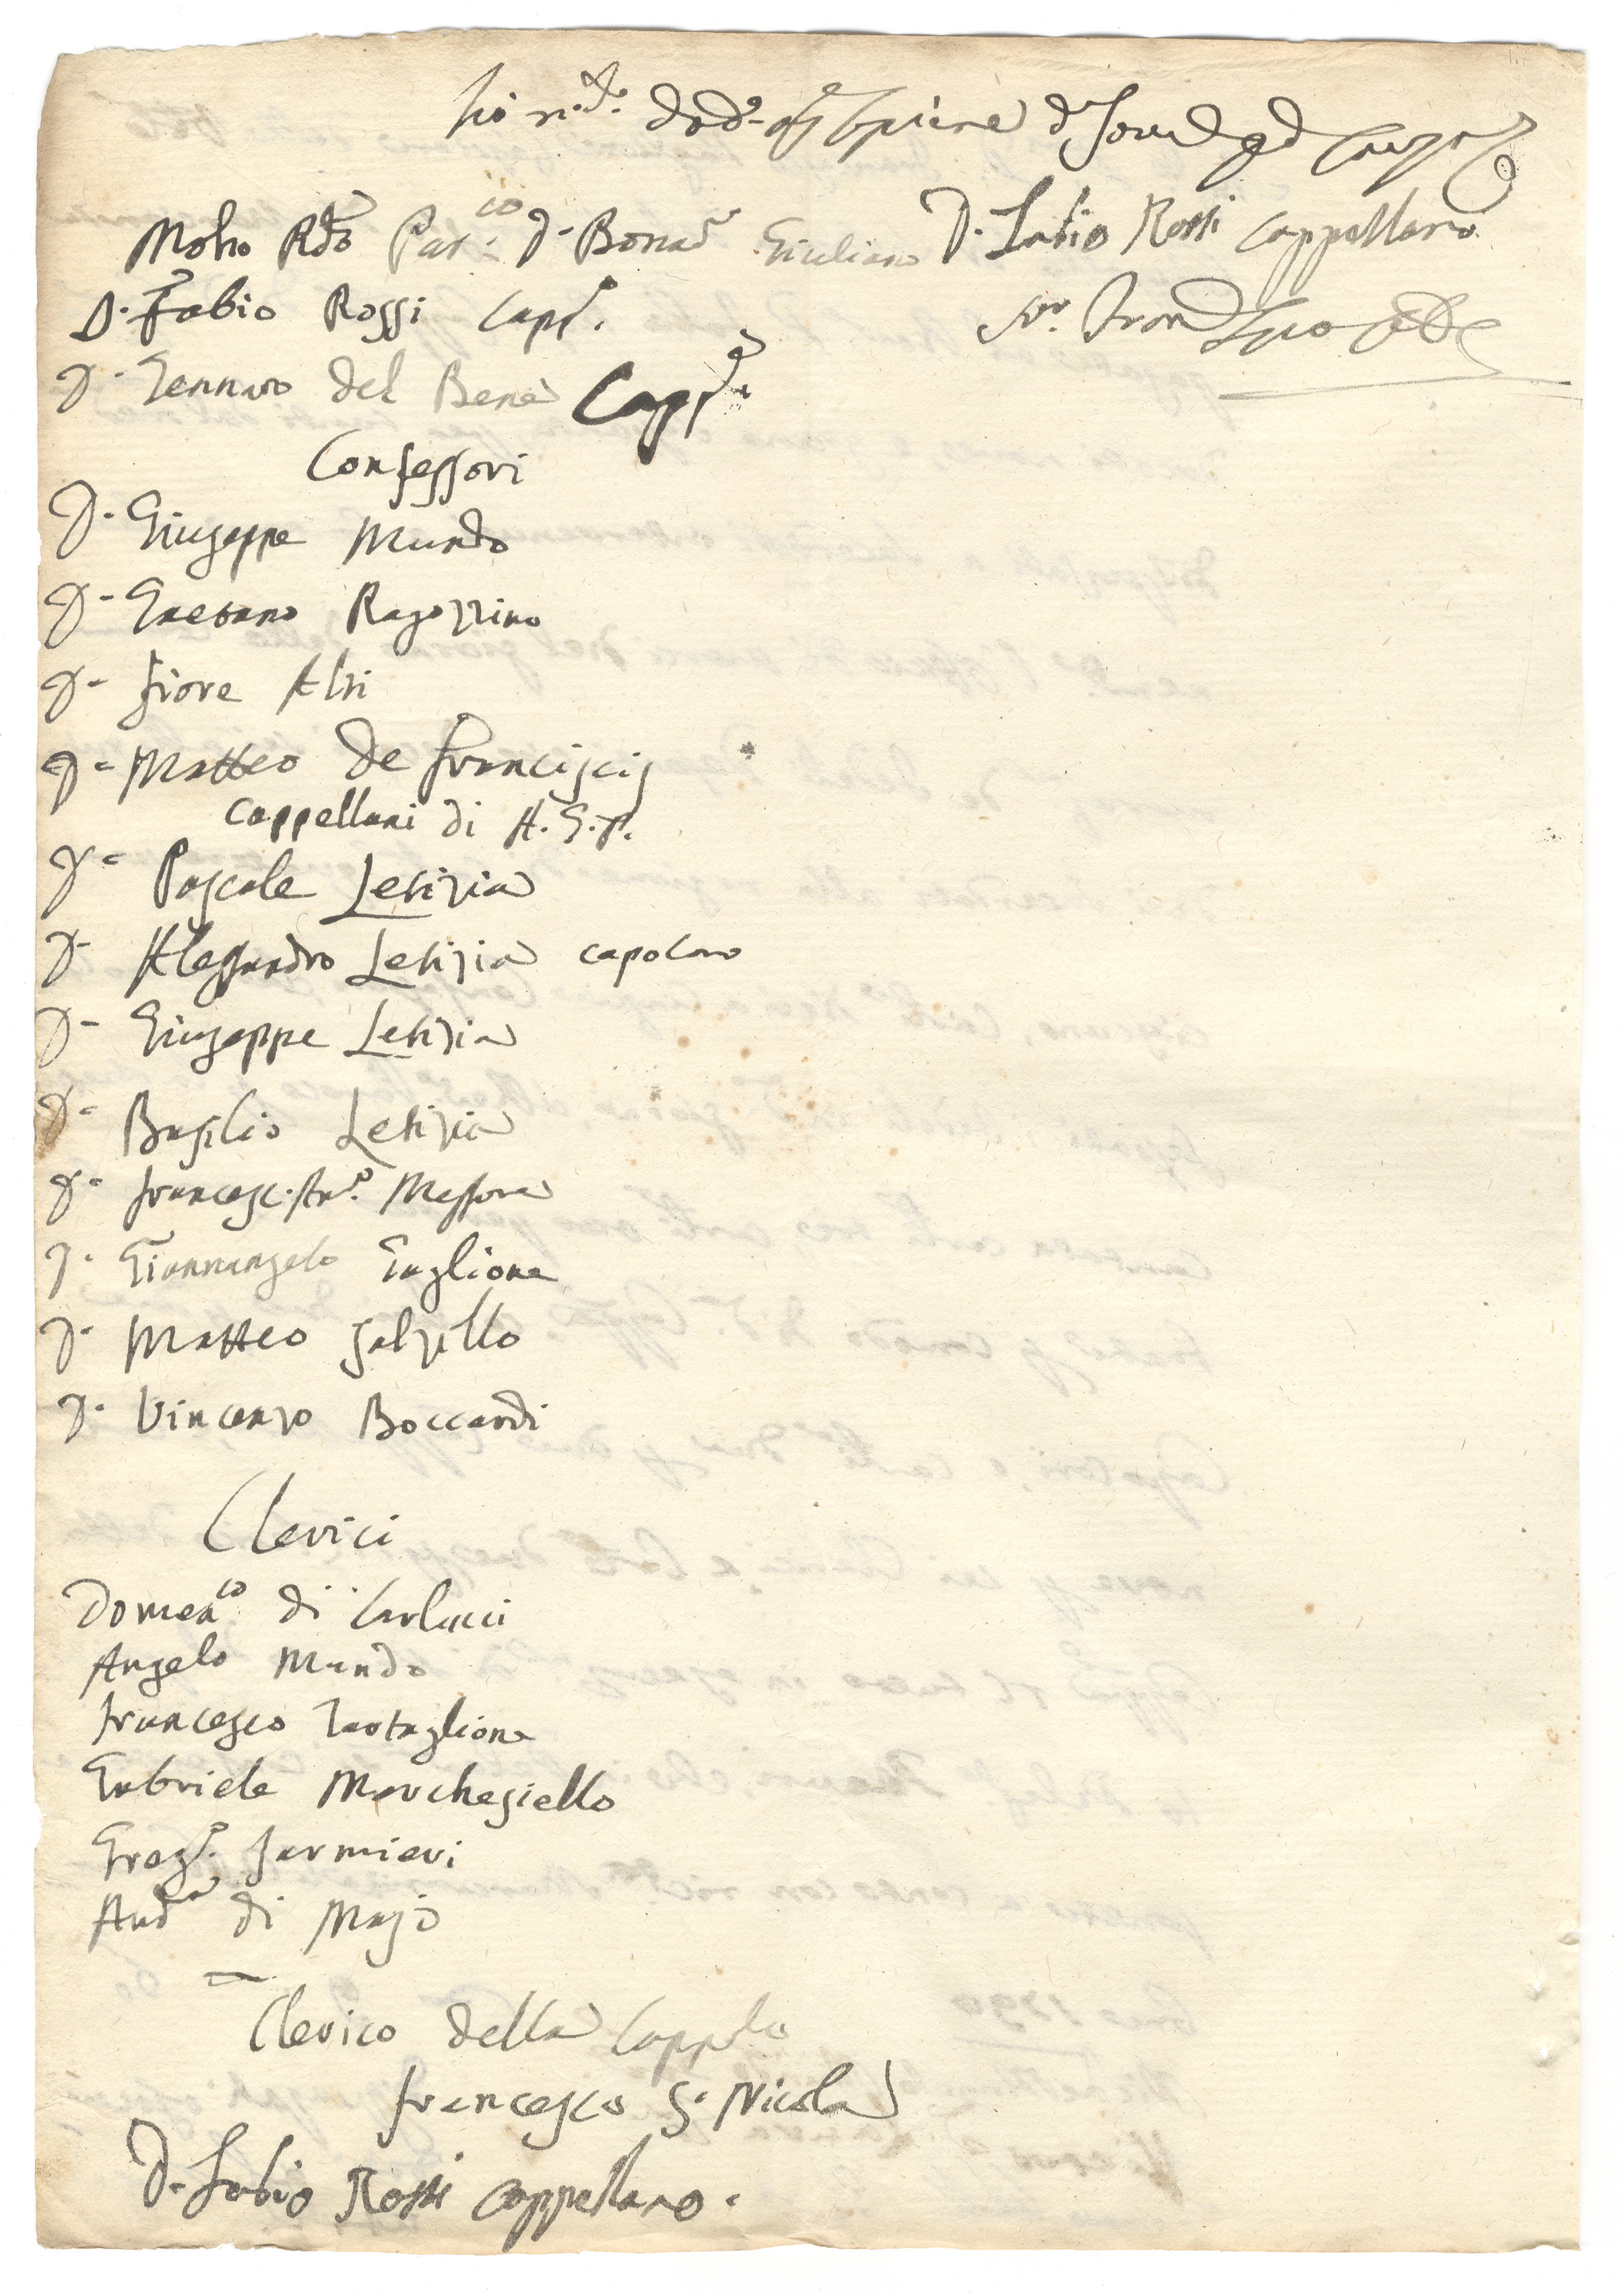 Molto Rdo Par.co D. Bona Giuliano
D. Fabio Rossi Cappellano
D. Fabio Rossi Capp.
D. Gennaro del Bene Capp.
Confessori
D. Giuseppe Mundo
D. Gaetano Ragozzino
D. Fiore Alti
D. Matteo de Franciscis
Cappellani di A. G. P.
D. Pascale Letizia
D. Alessandro Letizia capolano
D. Giuseppe Letizia
D. Basilio Letizia
D. Francesc. Ant.o Messore
D. Giannangelo Taglione
D. Matteo Salzillo
D. Vincenzo Boccardi
Clerici
Domen.co di Carlucci
Angelo Mundo
Francesco Tartaglione
Gabriele Marchesiello
Greg.o Sarmieri
And.a di Majo
Clerico della Cappella
Francesco S. Nicola
D. Fabio Rossi Cappellano.